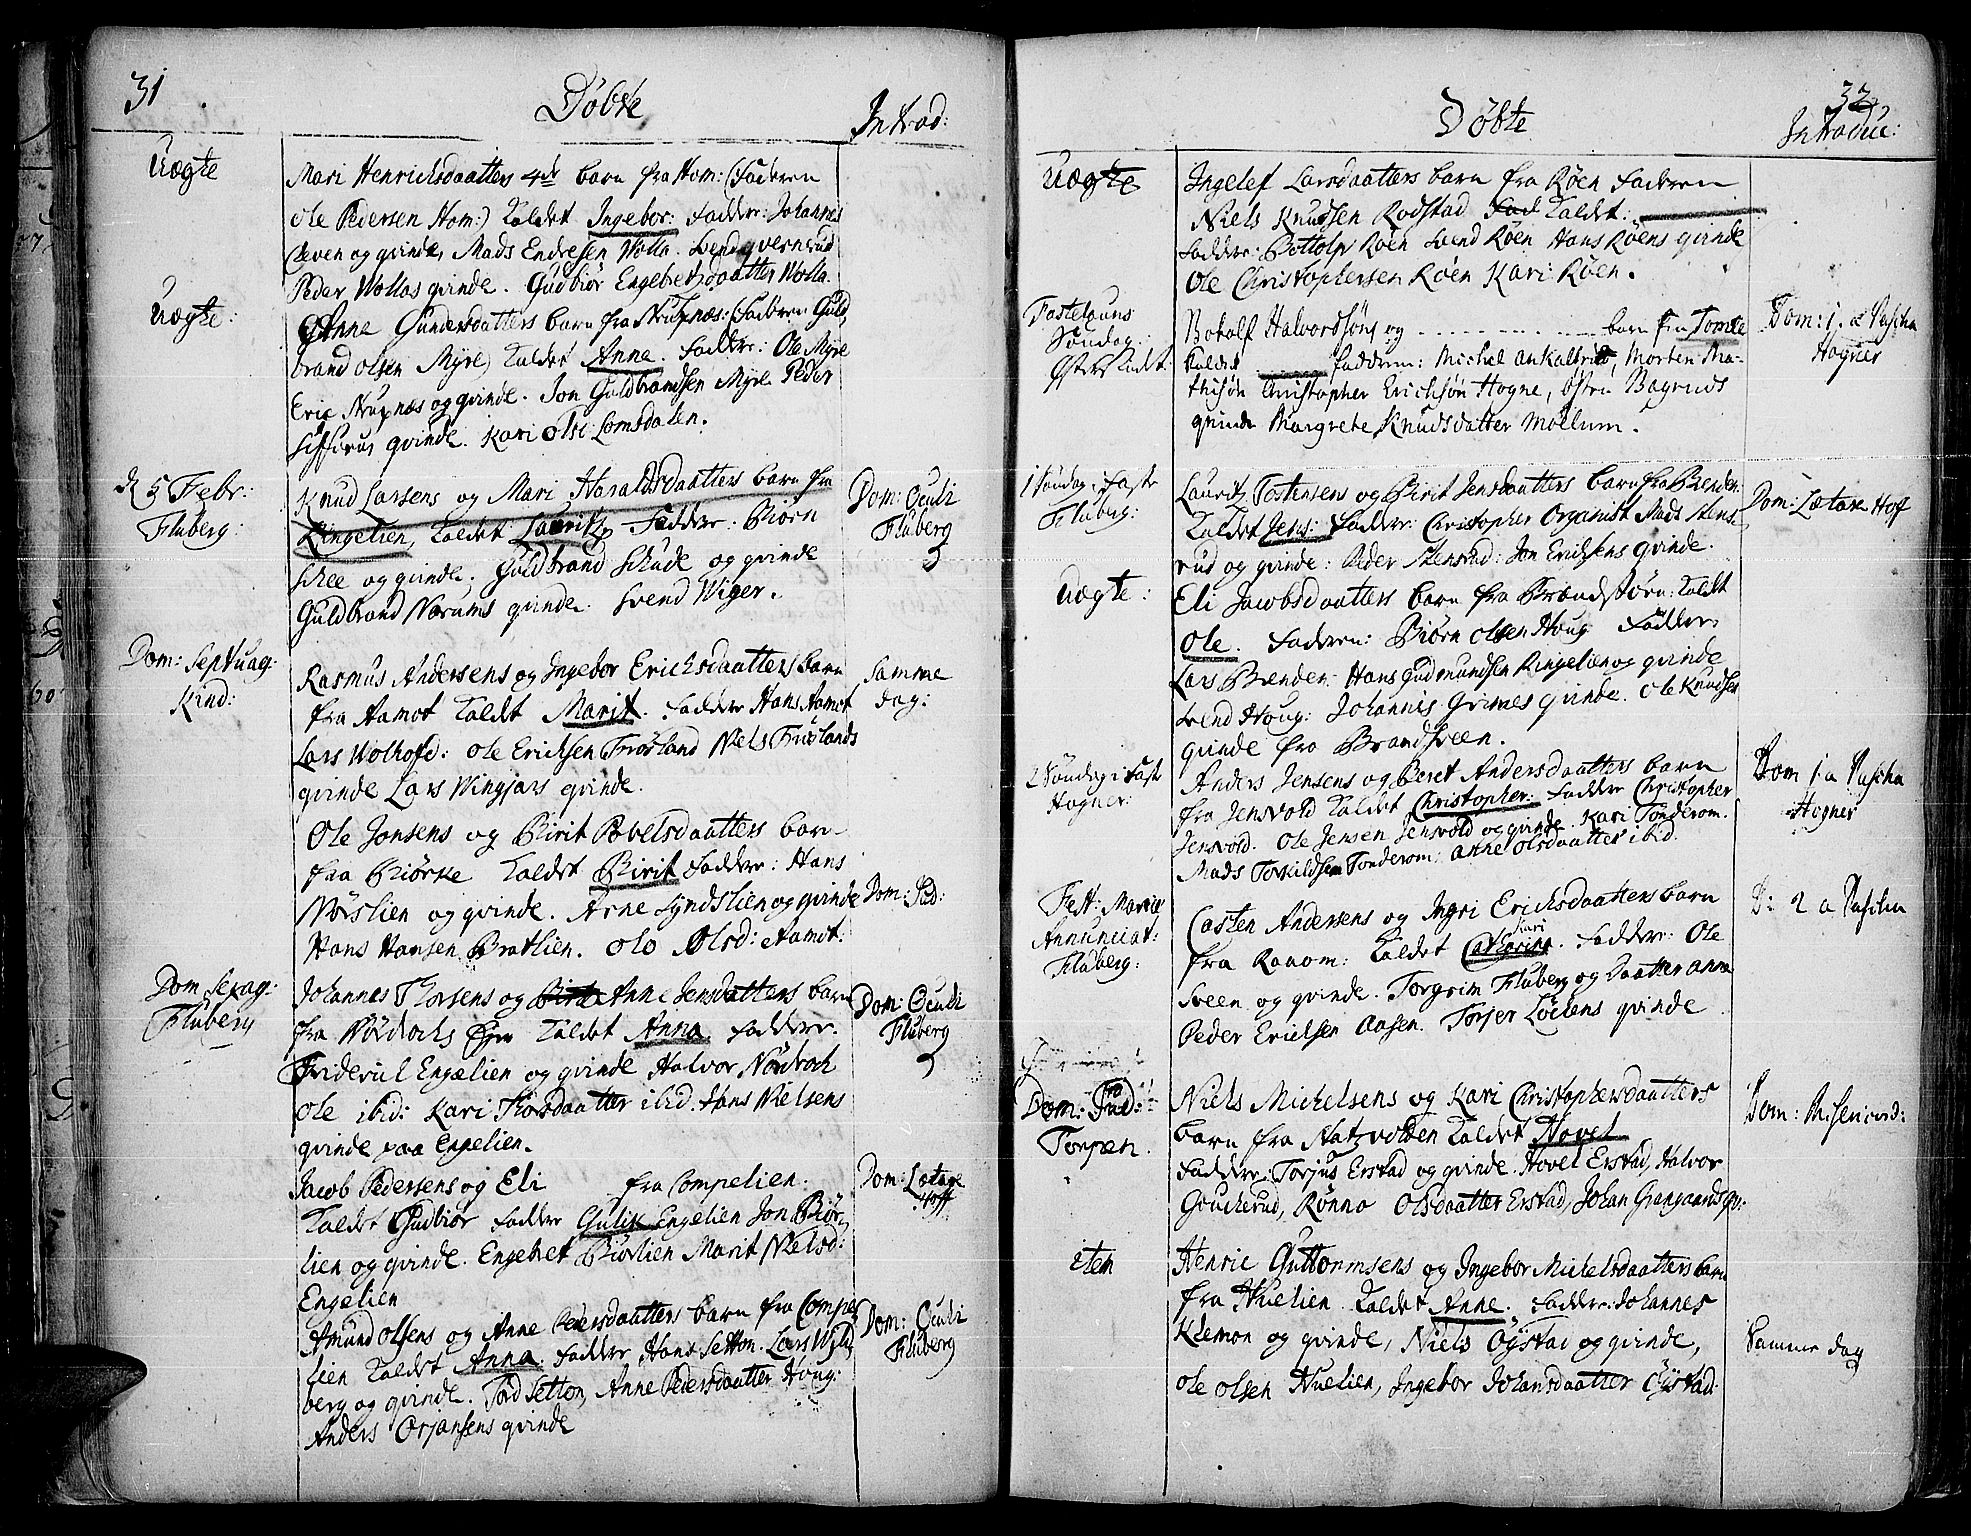 31
Döbte
Introd:
Uægte
Mari Henrichsdaatters 4de barn fra Hom: (Faderen
Ole Pedersen Hom:) Kaldet Ingebor: Fadder: Johannes
og qvinde, Mads Endresen Wolla. Svend
Peder Wollas qvinde. Gudbiör Engebretsdaatter Wolla.
Uægte:
Anne Gundersdatters barn fra (Faderen Guld
brand olsen Myre) Kaldet Anna. Fadder: Ole Myre
Eric og qvinde. Jon Guldbrandsen Myre Peder
qvinde. Kari Lomsdalen.
d 5 Febr:
Fluberg:
Knud Larsens og Mari Haraldsdaatters barn fra
Ringelien, Kaldet Lauritz Fadder: Biörn
Schee og qvinde. Guldbrand Schude og qvinde
Guldbrand Norums qvinde. Svend Wiger.
Dom: Oculi
Fluberg
Dom: Septuag:
Kind:
Rasmus Andersens og Ingebor Erichsdaatters barn
fra Aamot Kaldet Marit. Fadder Hans Aamot
Lars Wolhofd: Ole Erichsen Niels
qvinde Lars Wingjars qvinde.
Samme
dag:
Ole Jonsens og Birit Povelsdaatters barn
fra Biörke Kaldet Birit Fadder: Hans
Nörslien og qvinde. Arne Lyndslien og qvinde
Hans Hansen Bratlien. Ole Olsd: Aamot.
Dom: Jud:
Dom Sexag:
Fluberg
Johannes Thorsens og Anne Jensdatters barn
fra Kaldet Anna Fadder:
Engelien og qvinde Halvor Nördroch
Ole ibid: Kari Thorsdaatter ibid. Hans Nielsens
qvinde paa Engelien.
Dom: Oculi
Fluberg
Jacob Pedersens og Eli fra Compelien.
Kaldet Gudbiör Fadder Gulik Engelien Jon Biör
lien og qvinde. Engebret Biörlien Marit Nielsd:
Engelien
Dom: Lætare
Hoff
Amund Olsens og Anne Pedersdaatters barn fra Compe
lien Kaldet Anna. Fadder Hans Setton. Lars
berg og qvinde. Tord Setton, Anne Pedersdaatter Houg:
Anders Örjansens qvinde
Dom: Oculi
Fluberg
32
Döbte
Introduc:
Uægte
Ingelef Larsdaatters barn fra Röen Faderen
Niels Knudsen Rodstad Kaldet:
Fadder: Bottolv Röen Svend Röen Hans Röens qvinde
Ole Christophersen Röen Kari Röen.
Fastelauns
Söndag
Halvordsöns og barn fra Tomte
Kaldet Fadderne: Michel Morten Ma-
thisön Christopher Erichsön Hogne, Bagruds
qvinde Margrete Knudsdatter Möllum.
Dom: 1. a Pascha
Hogner
1 Söndag i Faste
Fluberg:
Lauritz Tostensens og Birit Jensdaatters barn fra Brenden
Kaldet Jens: Fadder: Christopher Organist Mads Stens
rud og qvinde: Peder Stensrud: Jon Erichsens qvinde.
Dom: Lætare Hof
Uægte:
Eli Jacobsdaatters barn fra Kaldt
Ole. Faderen: Biörn Olsen Houg Fadder
Lars Brenden. Hans Gudmundsen Ringelien og qvinde
Svend Houg: Johannis Grimes qvinde. Ole Knudsens
qvinde fra
2 Söndag i Faste
Hogner:
Anders Jensens og Beret Andersdaatters barn
fra Jensvold Kaldet Christopher: Fadder Christopher
Jensvold. Ole Jensen Jensvold og qvinde. Kari Tonderom.
Mads Torkildsen Tonderom: Anne Olsdaatter ibid.
Dom 1. a Pascha
Hogner
Fest: Mariæ
Annunciat:
Fluberg:
Casten Andersens og Ingri Erichsdaatters barn
Kari
fra Ranom: Kaldet Catharina. Fadder: Ole
Sveen og qvinde. Torgrim Fluberg og Daatter Anne
Peder Erichsen Aasen. Torjer Löckens qvinde
D: 2 a Pascha
Dom:
Torpen.
Niels Michelsens og Kari Christophersdaatters
barn fra Kaldet Hovel
Fadder: Torjus Erstad og qvinde. Hovel Erstad, Halvor
Gouckerud, Rönno Olsdaatter Erstad, Johan Grangaards qv:
Dom: Misericord:
item
Henric Guttormsens og Ingebor Michelsdaatters barn
fra Huelien. Kaldet Anne. Fadder: Johannes
Klemon og qvinde, Niels Öystad og qvinde,
Ole Olsen Huelien, Ingebor Johansdaatter Öystad:
Samme dag